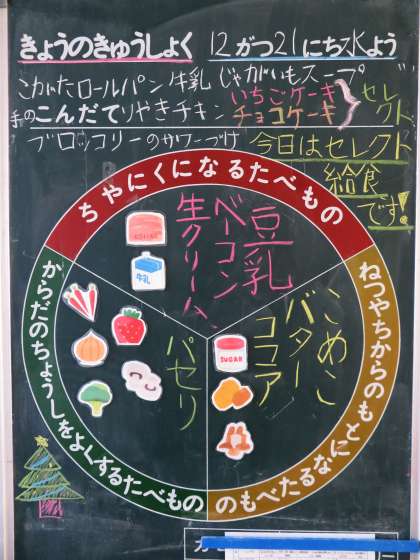 きょうのきゅうしょく 12がつ21にち水よう
こがたロールパン 牛乳 じゃがいもスープ
のこんだて てりやきチキン いちごケーキ チョコケーキ セレクト
ブロッコリーのサワーづけ 今日はセレクト
給食
です!
ちやにくになるたべもの
豆乳
ベーコン
生クリーム
牛乳
ねつやちからのもとになるたべもの
こめこ
バター
ココア
SUGAR
からだのちょうしをよくするたべもの
パセリ